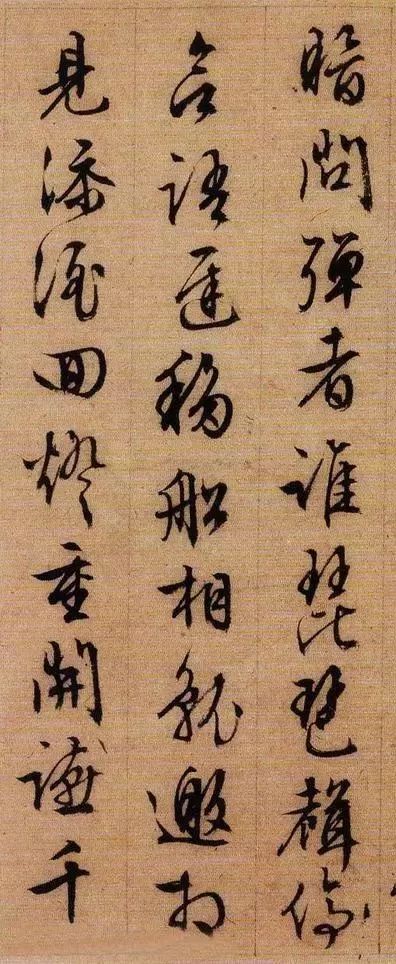 暗問彈者誰琵琶聲停
含語遲移船相就邀相
見添酒回燈重開讌千